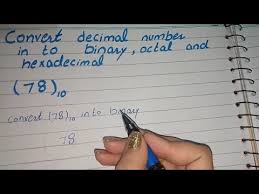 Convert decimal number
in to binary, octal and
hexadecimal
(78)₁₀
convert (78)₁₀ into binary
78